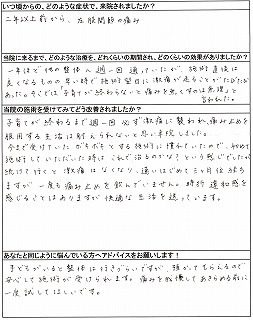 いつ頃からの、どのような症状で、来院されましたか?
二年以上前から、左股関節の痛み
当院に来るまで、どのような治療を、どれくらいの期間され、どのくらいの効果がありましたか?
一年ほど他の整体へ週一回通っていたが、施術直後は
良くなるものの早い時で施術翌日に激痛が走ることがたびたび
あった。そこでは子育てが終わらないと痛みを無くすのは無理と
言われた。
当院の施術を受けてみてどう改善されましたか?
子育てが終わるまで週一回必ず激痛に襲われ、痛み止めを
服用する生活は耐えられないと思い来院しました。
今まで受けていたボキボキとする施術に慣れていたので、初めて
施術していただいた時は「これで治るのかな?」という感じでしたが
続けて行くと激痛はなくなり、通いはじめて三ヶ月位経ち
ますが一度も痛み止めを飲んでいません。時折違和感を
感じることはありますが快適な生活を送っています。
あなたと同じように悩んでいる方へアドバイスをお願いします!
子どもがいると整体は行きづらいですが、預かってもらえるので
安心して施術が受けられます。痛みを我慢してあきらめる前に
一度試してほしいです。